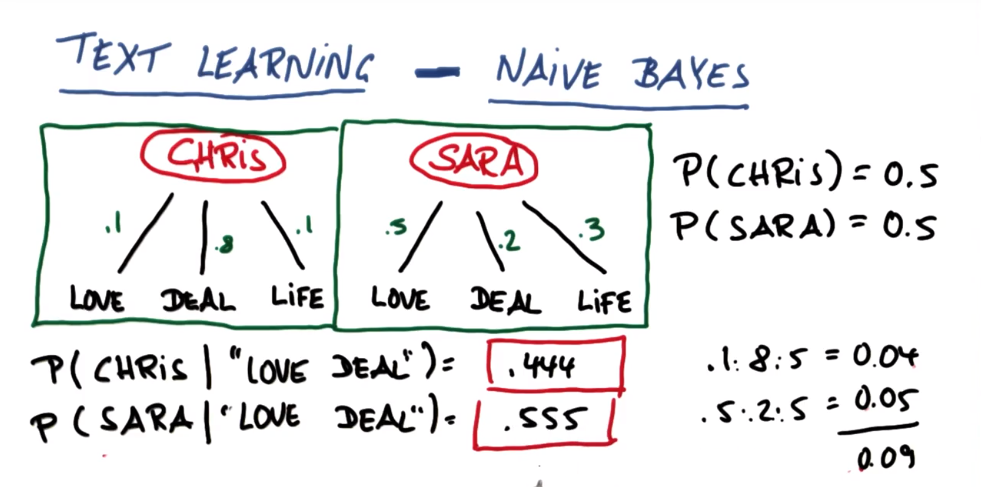 TEXT LEARNING - NAIVE BAYES
CHRIS
.1 .8 .1
LOVE DEAL LIFE
SARA
.5 .2 .3
LOVE DEAL LIFE
P(CHRIS) = 0.5
P(SARA) = 0.5
P(CHRIS | "LOVE DEAL") = .444
P(SARA | "LOVE DEAL") = .555
.1·.8·.5 = 0.04
.5·.2·.5 = 0.05
0.09